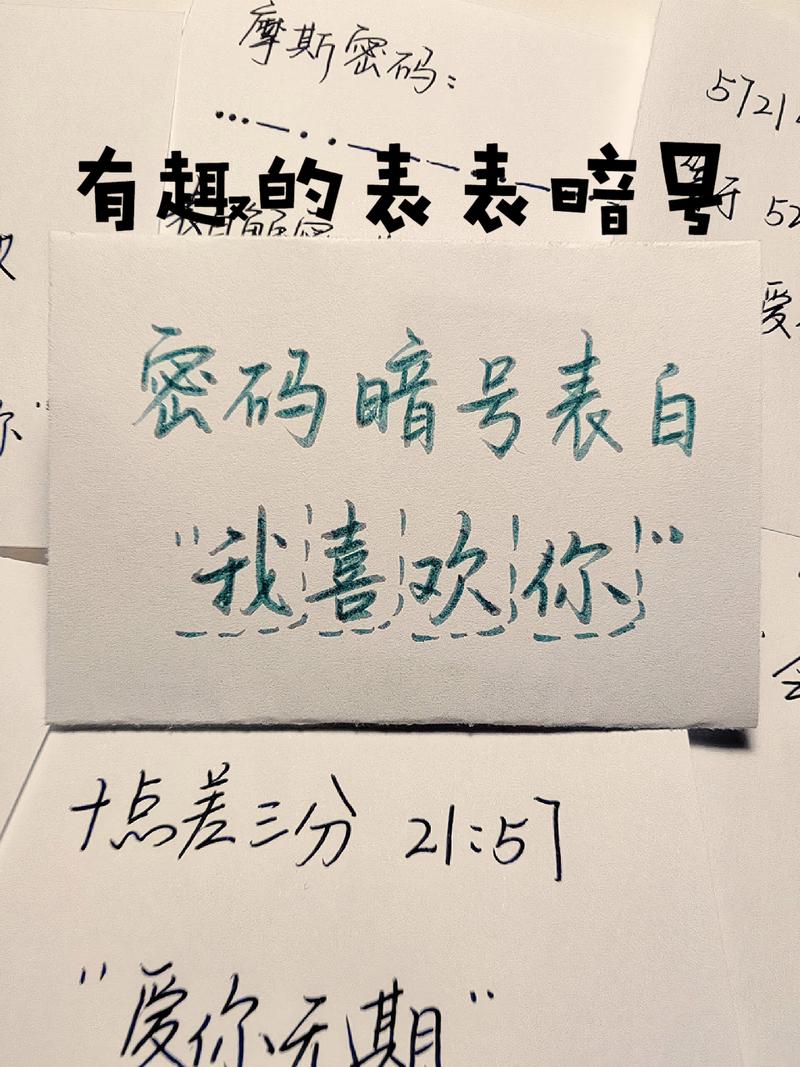 摩斯密码：
5721
有趣的表表暗号
于 52
爱
密码暗号表白
"我喜欢你"
十点差三分 21:57
"爱你无期"